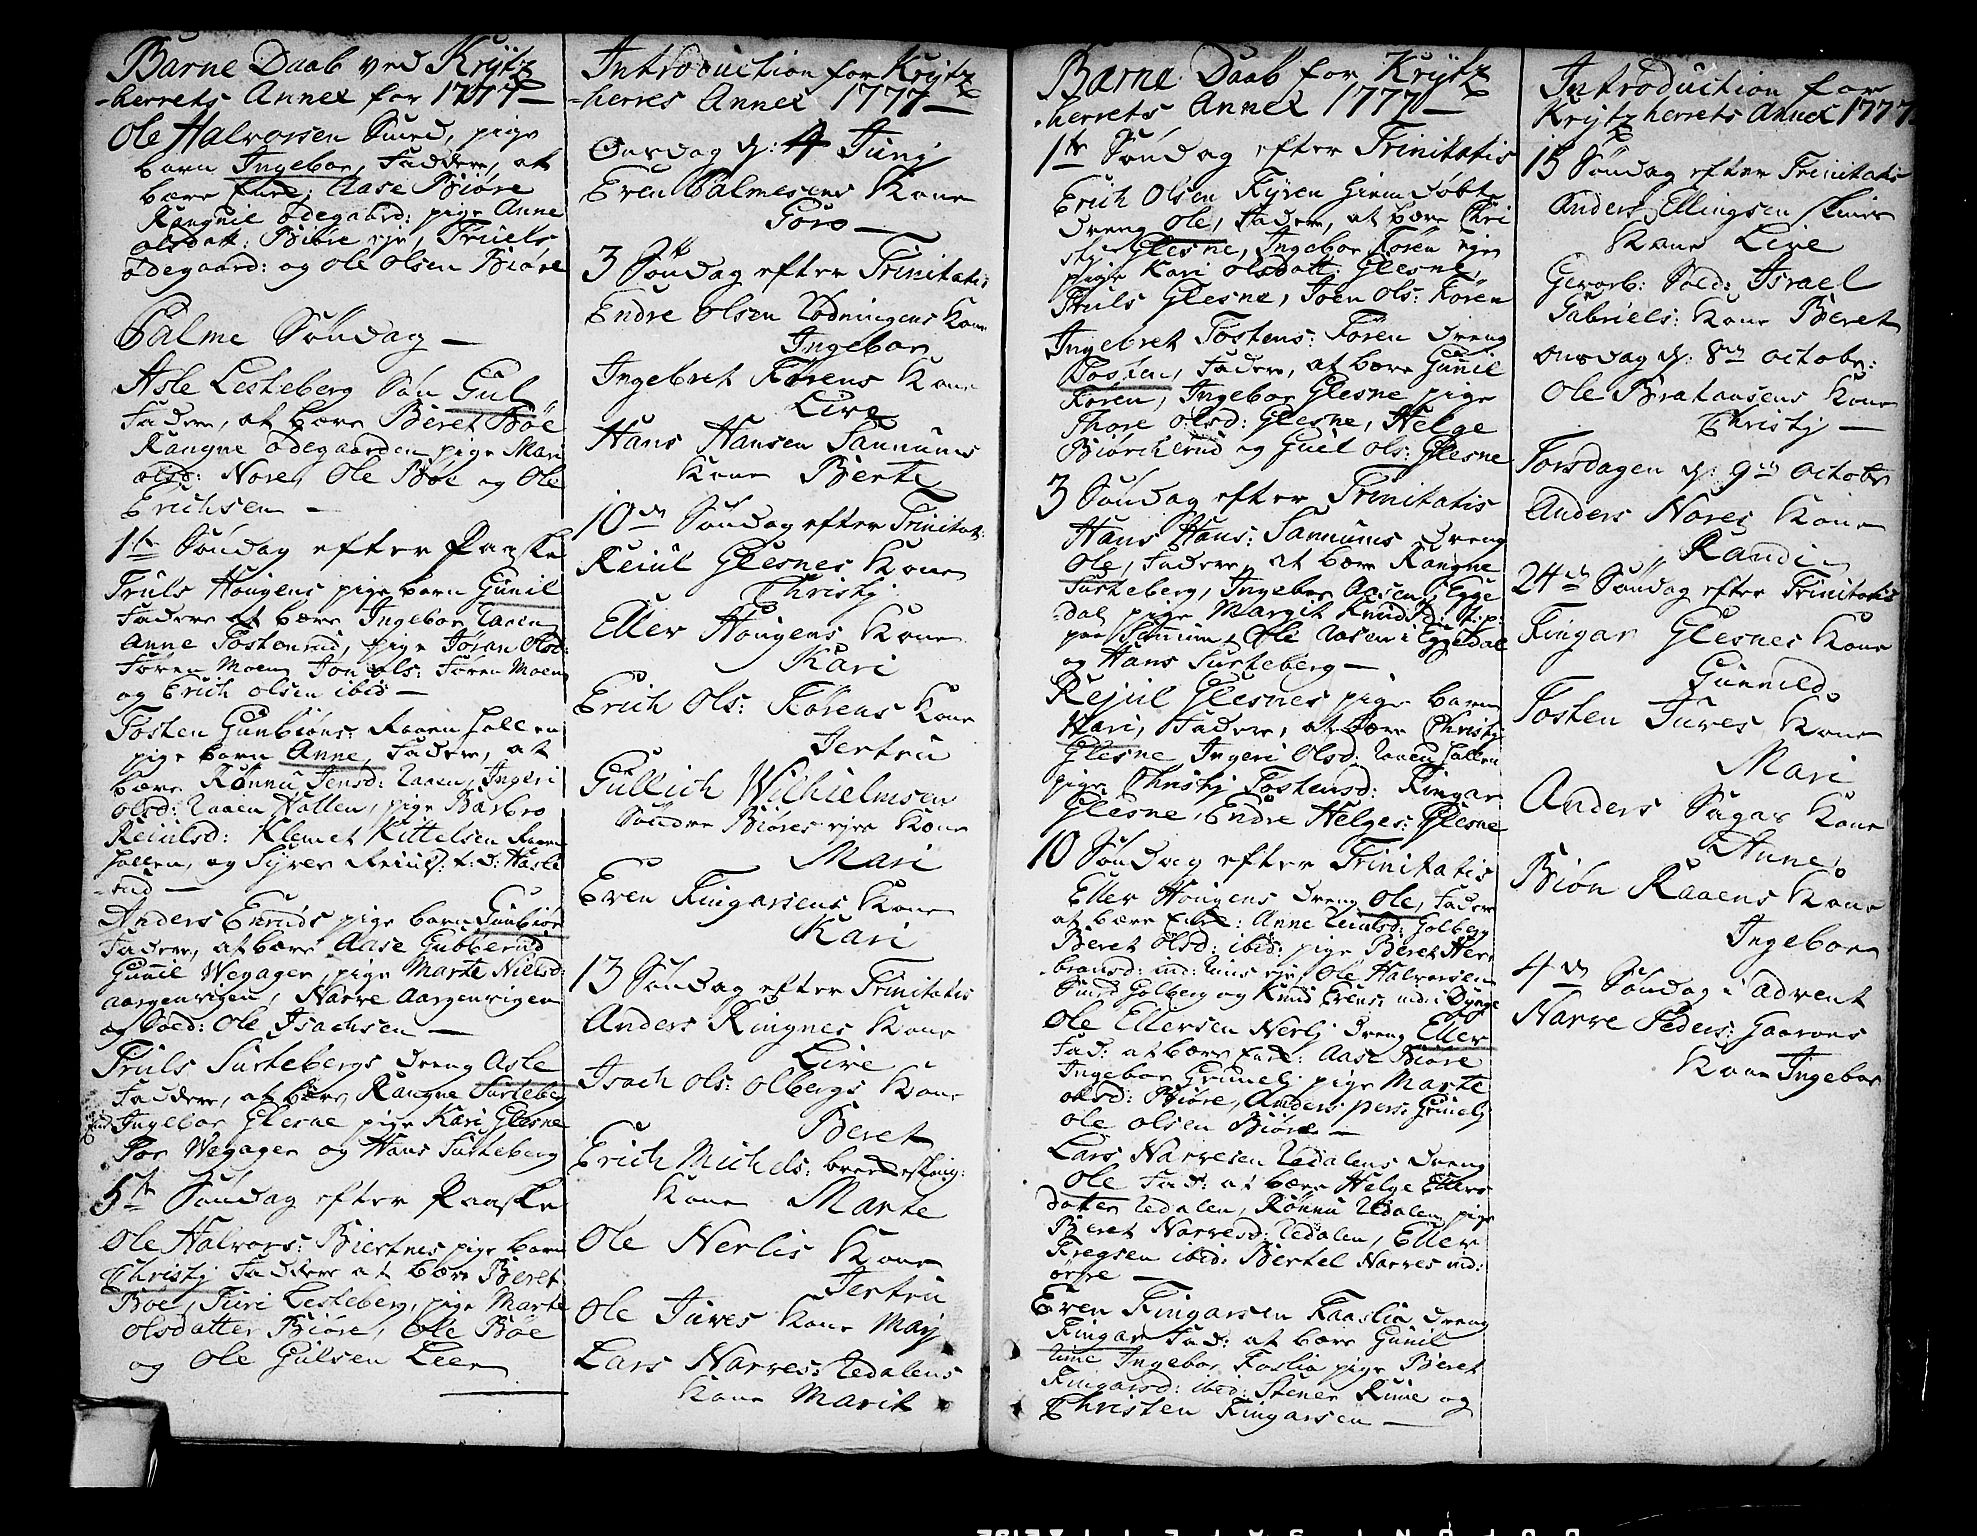 Barne Daab ved Krÿtz
-herrets Annex for 1777 —
Ole Halvorsen Smed, pige
barn Ingebor, Faddere, at
bære fure: Aase Biøre
Rangnil Ødegaard: pige Anne
olsdatt: Biøre eje, Truels
Ødegaard: og Ole Olsen Biøre
Palme Søndag —
Asle Lesteberg Søn Gul
Faddere, at bære Beret Bøe
Rangne Ødegaarden, pige Mari
olsd: Nore, Ole Bøe og Ole
Erichsen —
1te Søndag efter Paaske
Truls Hougens pige barn Gunil
Faddere at bære Ingebor Raaen
Anne Tostenrud, pige Jøran Olsd:
Føren Moen, Jon ols: Føren Moen
og Erich Olsen ibid —
Tosten Gunbiøns: Raaen hallen
pige barn Anne, Faddere, at
bære Rønnu Jensd: Raaen, Ingeri
olsd: Raaen hallen, pige Barbro
Reiulsd: Klemet Kittelsen Raaen
hallen, og Syver t:d: Hasle
-rud —
Anders Enruds pige barn Gunbiør
Faddere, at bære Aase Gubberud
Gunil Wegager, pige Marte Nielsd:
Aargenvigen, Narve Aargenvigen
og Sold: Ole Isachsen —
Truls Surtebergs dreng Asle
Faddere, at bære Rangne Surteberg
Ingebor Glesne pige Kari Glesne
Por Wegager og Hans Surteberg
5te Søndag efter Paaske
Ole Halvors: Biertnes pige barn
Christj Faddere at bære Beret
Bøe, Turi Lesteberg, pige Marte
Olsdatter Biøre, Ole Bøe
og Ole Gulsen Leer
Introduction for Krÿtz
-herres Annex 1777 —
Onsdag d: 4 Junj
Even Palmesens Kone
Goro —
3 Søndag efter Trinitatis
Endre Olsen Rodningens Kone
Ingebor
Ingebret Førens Kone
Live
Hans Hansen Sannums
Kone Berte
10de Søndag efter Trinitat:
Reiul Glesnes Kone
Christj
Eller Hougens Kone
Kari
Erich Ols: Førens Kone
Jertru
Gullich Wilhielmsen
Søndre Biøres eje Kone
Mari
Even Fingarsens Kone
Kari
13 Søndag efter Trinitatis
Anders Ringnes Kone
Live
Isach Ols: Olbergs Kone
Beret
Erich Michels:
Kone Marte
Ole Nerlis Kone
Jertru
Ole Tures Kone Marj
Lars Narves: Redalens
Kone Marit
Barne Daab for Krÿtz
-herrets Annex 1777 —
1te Søndag efter Trinitatis
Erich Olsen Føren hiem døbte
dreng Ole, Fadere, at bære Chri
stj Glesne, Ingebor Føren eje
pige Kari olsdatt: Glesne,
Truls Glesne, Joen Ols: Føren
Ingebret Tostens: Føren dreng
Tosten, Fadere, at bære Gunil
Føren, Ingebor Glesne pige
Thore Olsd: Glesne, Helge
Biørcherud og Guel Ols: Glesne
3 Søndag efter Trinitatis
Hans Hans: Sannums dreng
Ole, Fadere, at bære Rangne
Surteberg, Ingebor Aasen i Egge
-dal pige Margit Knudsd: t:p:
paa Sannum, Ole Aasen i Eggedal
og Hans Surteberg —
Rejul Glesnes pige barn
Kari, Fadere, at bære Christj
Glesne Ingeri Olsd: Raaen hallen
pige Christj Tostensd: Fingar
Glesne, Endre Helges: Glesne
10 Søndag efter Trinitatis
Eller Hougens dreng Ole, Fadere
at bære Anne Reiulsd: Golberg
Beret Olsd: ibid: pige Beret Her
bransd: Ole Halvorsen
Smed Golberg og Knud Evens:
Ole Ellersen Nerlj dreng Eller
Fad: at bære Aase Biøre
Ingebor Grimelj pige Marte
olsd: Biøre, Anders pers: Grimelj
Ole Olsen Biøre —
Lars Narvesen Redalens dreng
Ole Fad: at bære Helge Ellers
datter Redalen, Rønnu Redalen pige
Beret Narvesd: Redalen, Eller
Fregsen ibid: Bertel Narves:
Even Fingarsen Kaaslia dreng
Fingar Fad: at bære Gunil
Rime Ingebor Foslia pige Beret
Fingarsd: ibid: Stener Rime og
Christen Fingarsen —
Introduction for
Krÿtzherrets Annex 1777
15 Søndag efter Trinitatis
Anders Ellingsen
Kone Live
Gevorb: Sold: Israel
Gabriels: Kone Beret
Onsdag d: 8de octobr:
Ole Brataasens Kone
Christj —
Torsdagen d: 9de octobr
Anders Nores Kone
Randi
24de Søndag efter Trinitatis
Fingar Glesnes Kone
Gunnild
Tosten Tures Kone
Mari
Anders Sagar Kone
Anne
Biøn Raaens Kone
Ingebor
4de Søndag i Advent
Narve Peders: Gaarens
Kone Ingebor